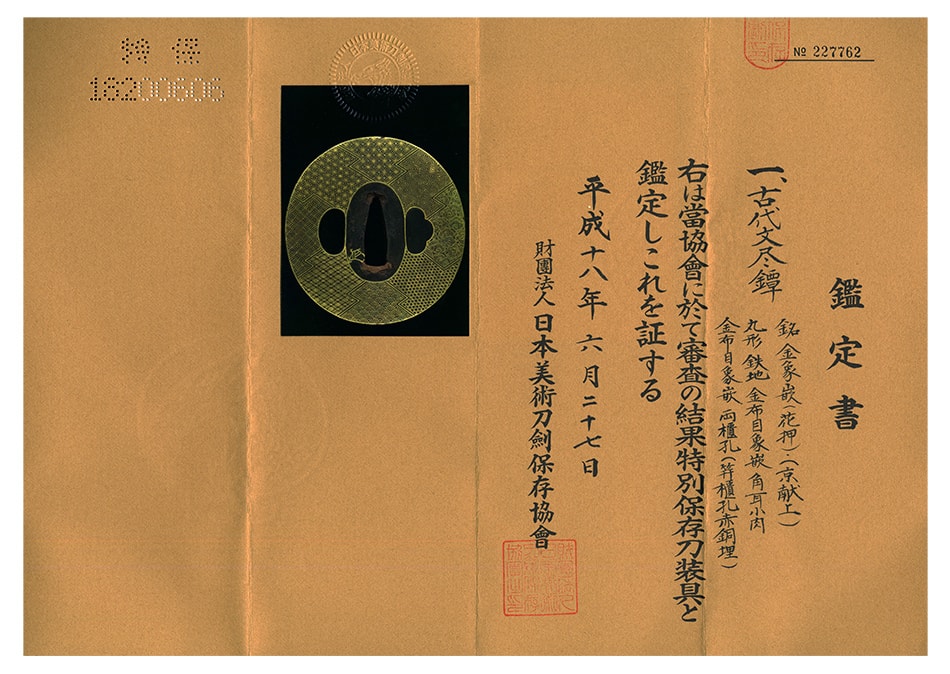 鑑定書
一、古代文尽鐔
銘 金象嵌(花押)・(京献上)
丸形 鉄地 金布目象嵌 角耳小肉
金布目象嵌 両櫃孔(笄櫃孔赤銅埋)
右は當協會に於て審査の結果特別保存刀装具と
鑑定しこれを証する
平成十八年六月二十七日
財團法人 日本美術刀劍保存協會
№ 227762
特保
18200606